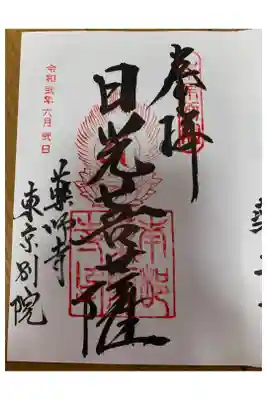 奉拝
日光菩薩
薬師寺
東京別院
令和弐年六月弐日